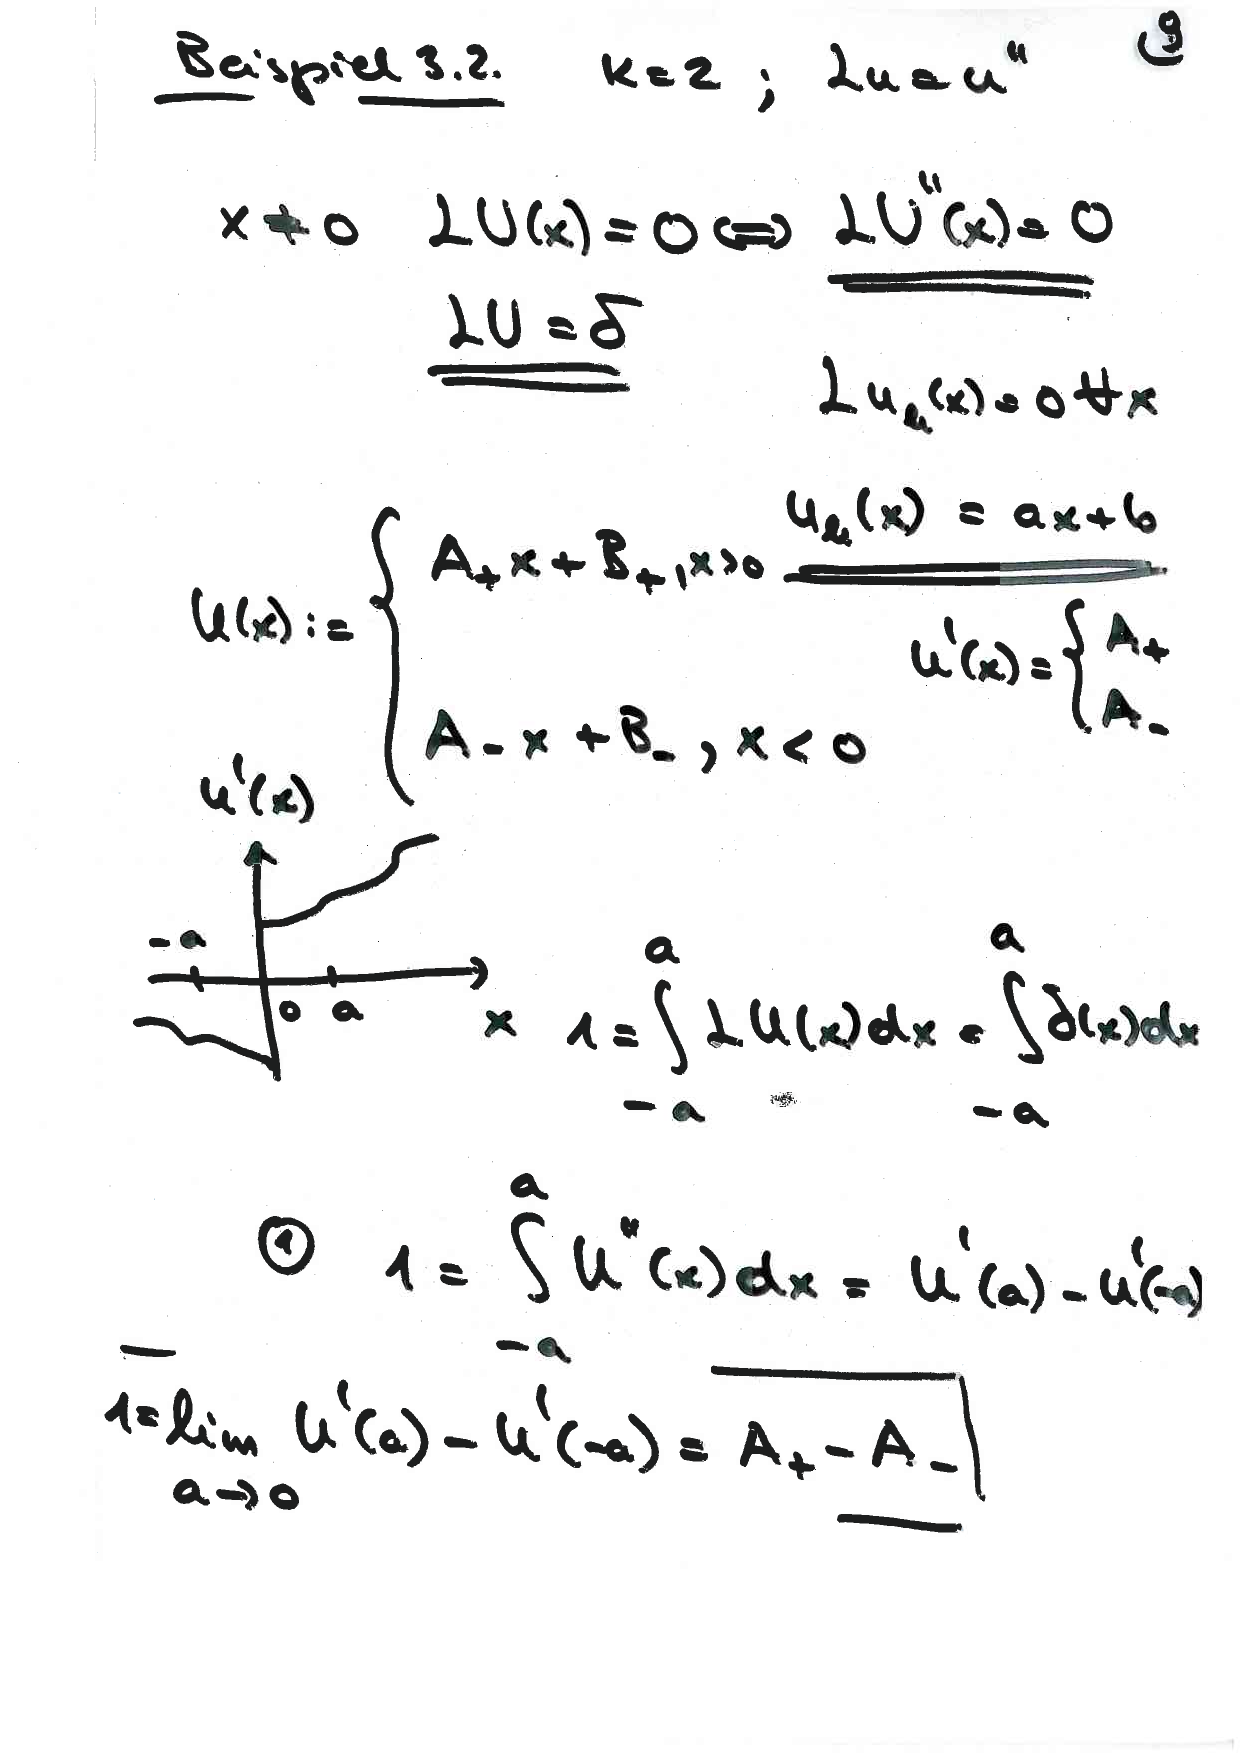 9
Beispiel 3.2. K=2 ; Lu=u"
x≠0 LU(x)=0 ⇔ LU"(x)=0
LU=δ
Lu_h(x)=0 ∀ x
u_h(x) = ax+b
U(x):= { A₊x+B₊, x>0
A₋x+B₋, x<0
u'(x)= { A₊
A₋
u'(x)
-a
0 a
x
1=∫_{-a}^{a} LU(x)dx = ∫_{-a}^{a} δ(x)dx
① 1=∫_{-a}^{a} U"(x)dx = U'(a)-U'(-a)
1=lim_{a→0} U'(a)-U'(-a)=A₊-A₋